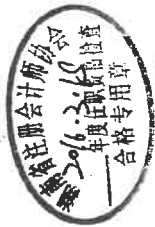 省注册会计师协会
2016.3.
年度任职资格检查
合格专用章